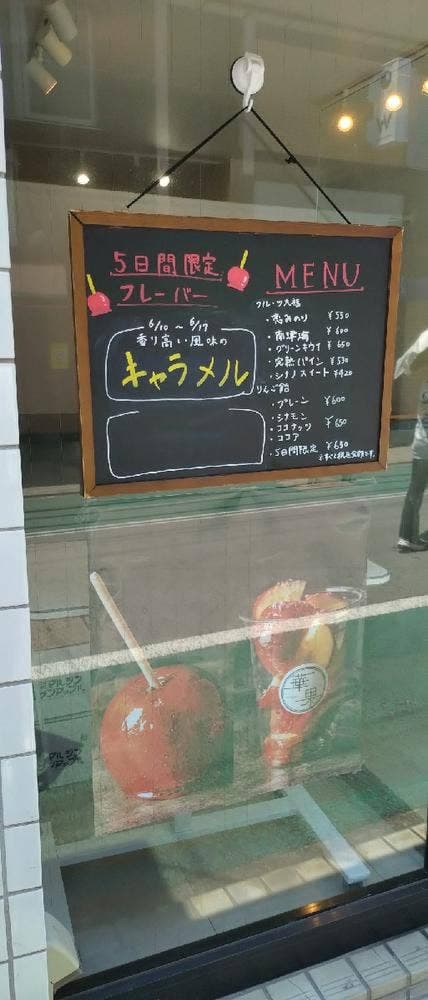 5日間限定
フレーバー
6/10 ~ 6/17
香り高い風味の
キャラメル
MENU
フルーツ大福
・恋みのり ¥550
・南津海 ¥600
・グリーンキウイ ¥650
・完熟パイン ¥530
・シナノスイート ¥420
りんご飴
・プレーン ¥600
・シナモン
・ココナッツ ¥650
・ココア
・5日間限定 ¥680
華果